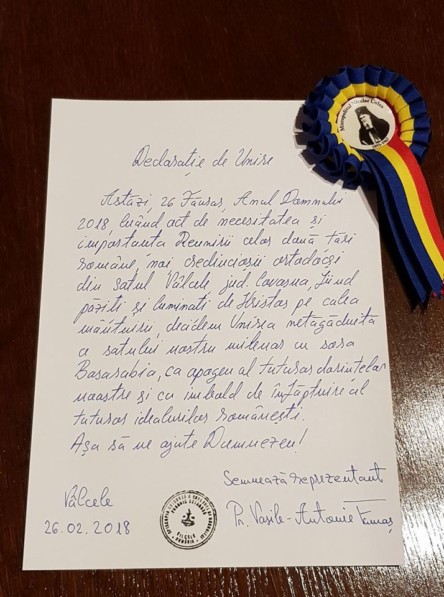 Declarație de Unire
Astăzi, 26 Făurar, Anul Domnului
2018, luând act de necesitatea și
importanta Reunirii celor două țări
române, noi credincioșii ortodocși
din satul Vâlcele, jud. Covasna, fiind
păziti și luminati de Hristos pe calea
mântuirii decidem Unirea netăgăduită
a satului nostru milenar cu sora
Basarabia, ca apogeu al tuturor dorintelor
noastre și ca imbold de înfăptuire al
tuturor idealurilor românești.
Așa să ne ajute Dumnezeu!
Semnează reprezentant
Vâlcele
26.02.2018
Pr. Vasile-Antonie Tămaș
Mitropolitul Nicolae Colan